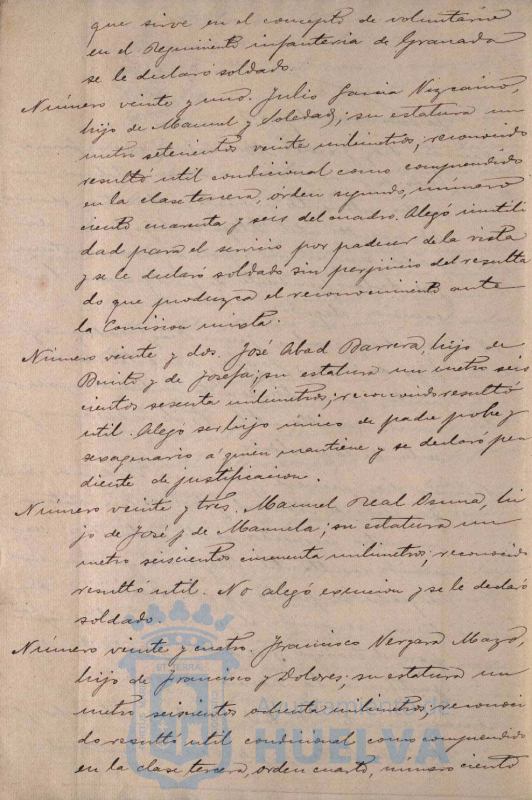 que sirve en el concepto de voluntario
en el Regimiento infanteria de Granada
se le declaró soldado.
Número veinte y uno. Julio Garcia Vizcaino,
hijo de Manuel y Soledad; su estatura un
metro setecientos veinte milimetros; reconocido
resultó util condicional como comprendido
en la clase tercera, orden segundo, número
ciento cuarenta y seis del cuadro. Alegó inutili
dad para el servicio por padecer de la vista
y se le declaró soldado sin perjuicio del resulta
do que produzca el reconocimiento ante
la Comision mixta.
Número veinte y dos. José Abad Barrera, hijo de
Benito y de Josefa; su estatura un metro seis
cientos sesenta milimetros; reconocido resultó
util. Alegó ser hijo único de padre pobre y
sexagenario á quien mantiene y se declaró pen
diente de justificacion.
Número veinte y tres. Manuel Real Osuna, hi
jo de José y de Manuela; su estatura un
metro seiscientos cincuenta milimetros; reconocido
resultó util. No alegó exencion y se le declaró
soldado.
Número veinte y cuatro. Francisco Vergara Mazo,
hijo de Francisco y Dolores; su estatura un
metro seiscientos ochenta milimetros; reconoci
do resultó util condicional como comprendido
en la clase tercera, orden cuarto, número ciento
HUELVA